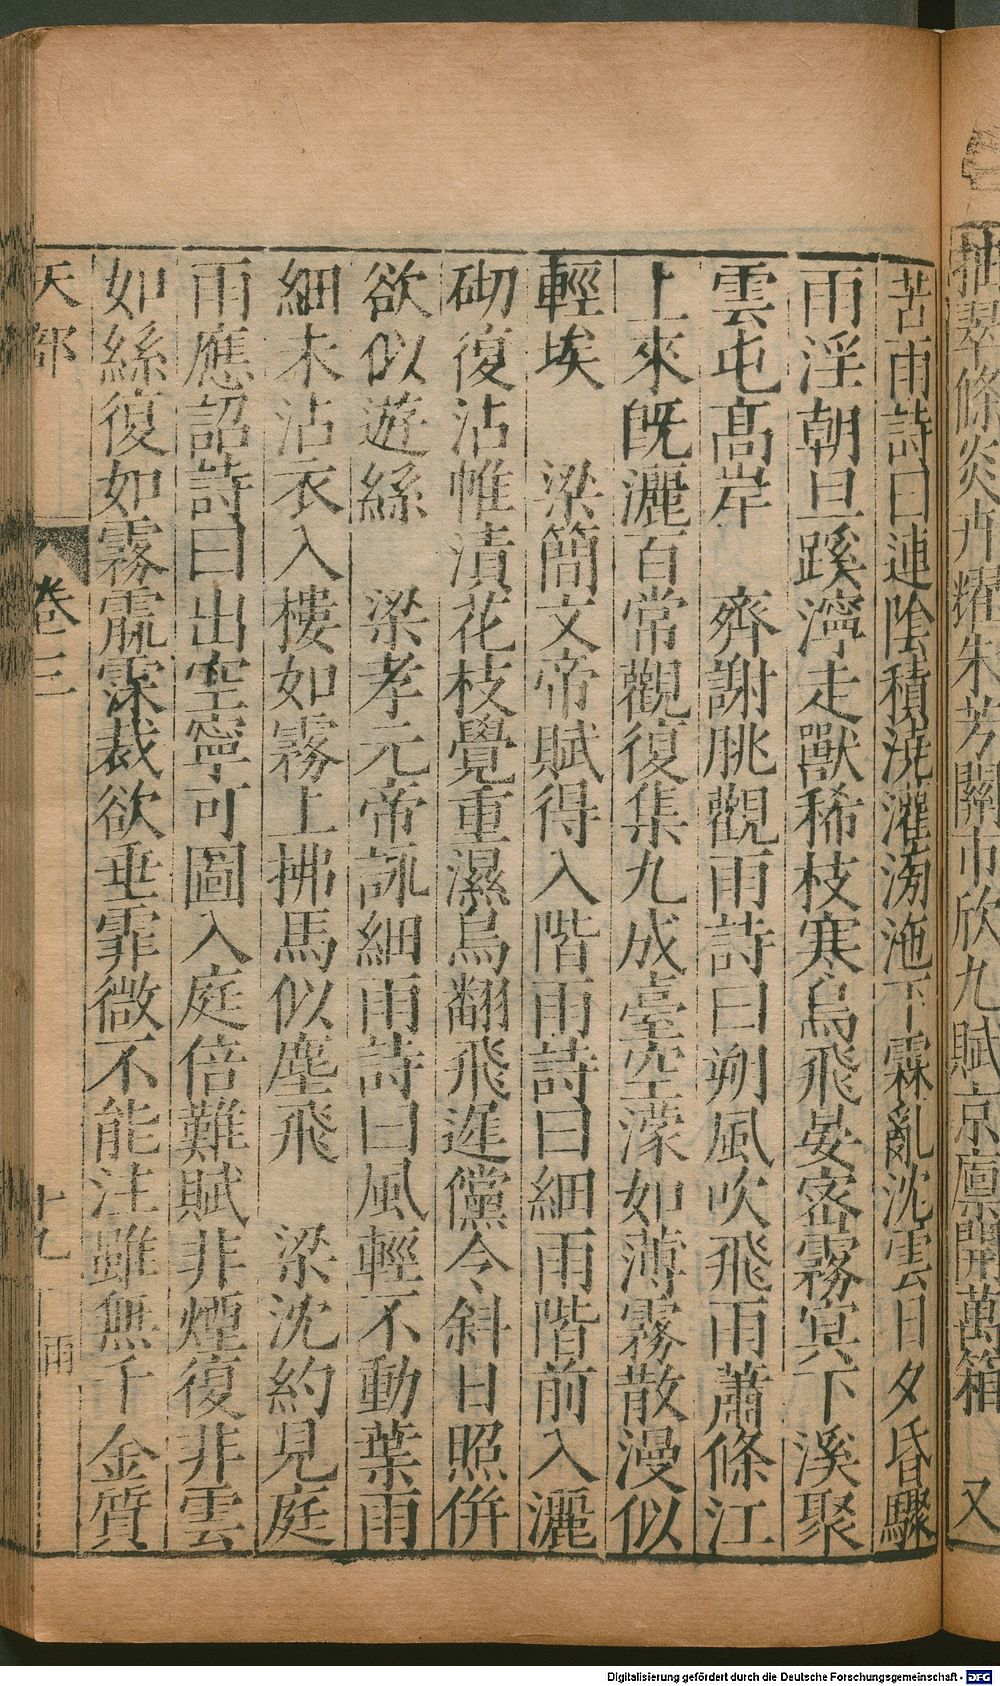 抽翠條炎卉耀朱芳關市欣九賦京廩開萬箱　又
苦雨詩曰連陰積澆灌滂沲下霖亂沈雲日夕昏驟
雨淫朝旦蹊濘走獸稀枝寒鳥飛晏密霧冥下溪聚
雲屯高岸　齊謝朓觀雨詩曰朔風吹飛雨蕭條江
上來既灑百常觀復集九成臺空濛如薄霧散漫似
輕埃　梁簡文帝賦得入階雨詩曰細雨階前入灑
砌復沾帷漬花枝覺重濕鳥翻飛遲儻令斜日照併
欲似遊絲　梁孝元帝詠細雨詩曰風輕不動葉雨
細未沾衣入樓如霧上拂馬似塵飛　梁沈約見庭
雨應詔詩曰出空寧可圖入庭倍難賦非煙復非雲
如絲復如霧霢霂裁欲垂霏微不能注雖無千金質
天部　卷三　十九　雨
Digitalisierung gefördert durch die Deutsche Forschungsgemeinschaft - DFG